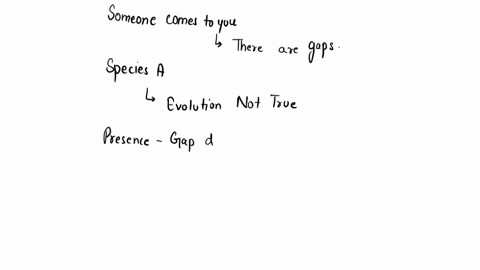 Someone comes to you
↳ There are gaps.
Species A
↳ Evolution Not True
Presence - Gap d